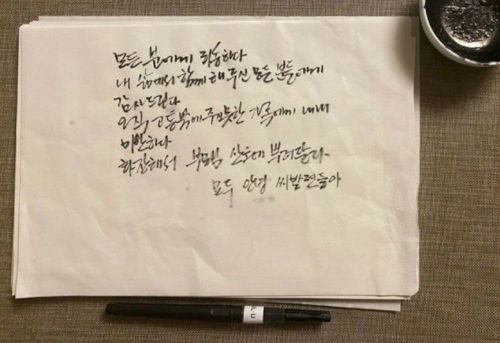 모든 분에게 죄송하다
내 삶에서 함께 해주신 모든 분들에게
감사드린다
오직 고통밖에 주지 못한 가족에게 내내
미안하다
화장해서 부모님 산소에 뿌려달라
모두 안녕 씨발련들아